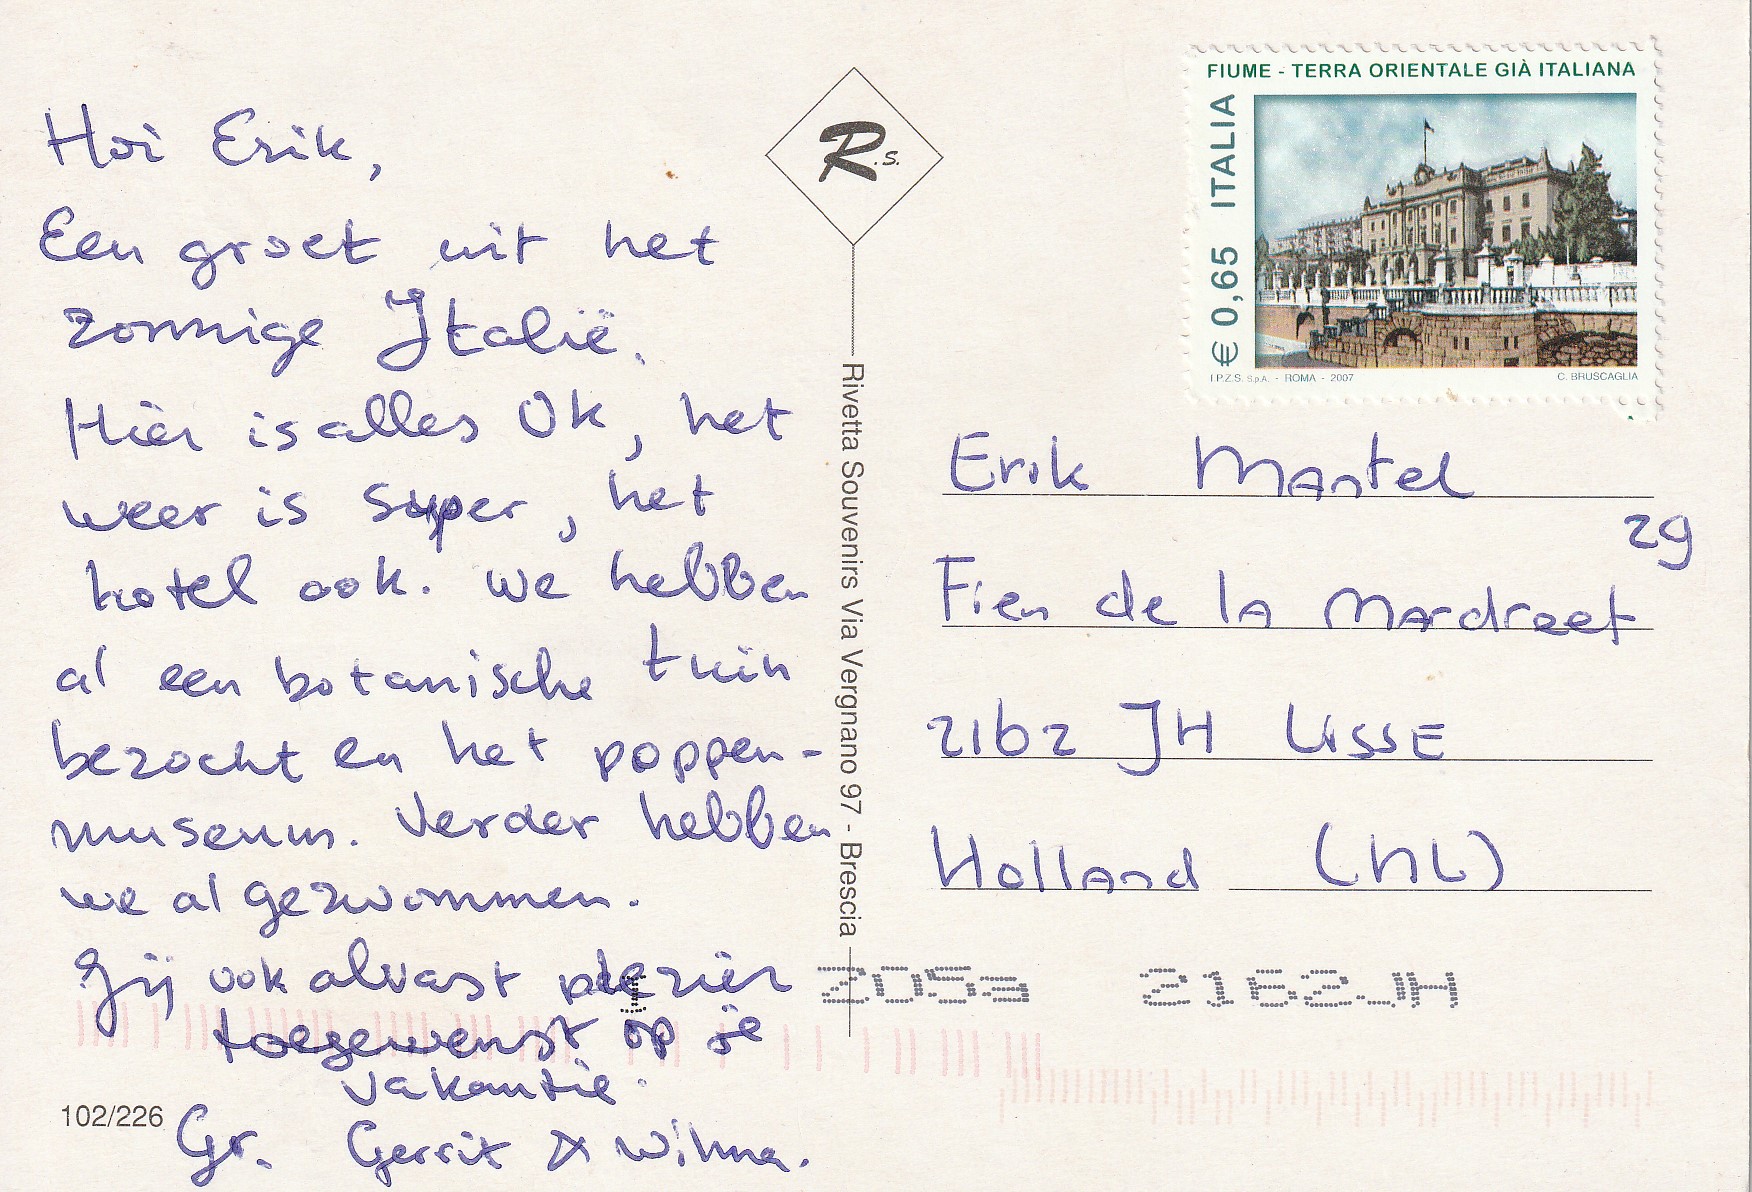 Hoi Erik,
Een groet uit het
zonnige Italië.
Hier is alles OK, het
weer is super, het
hotel ook. We hebben
al een botanische tuin
bezocht en het poppen-
museum. Verder hebben
we al gezwommen.
Jij ook alvast plezier
toegewenst op je
vakantie.
Gr. Gerrit & Wilma.
102/226
R.s.
Rivetta Souvenirs Via Vergnano 97 - Brescia
FIUME - TERRA ORIENTALE GIÀ ITALIANA
€ 0,65 ITALIA
I.P.Z.S. S.p.A. - ROMA - 2007 C. BRUSCAGLIA
Erik Mantel
29
Fien de la Mardreef
2162 JH LISSE
Holland (NL)
2162JH